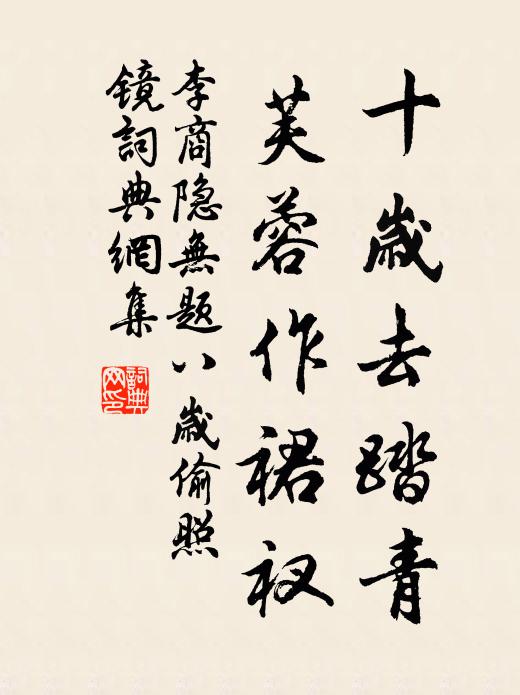 十歲去踏青
芙蓉作裙衩
李商隐無題八歲偷照
鏡詞典網集
詞典网印